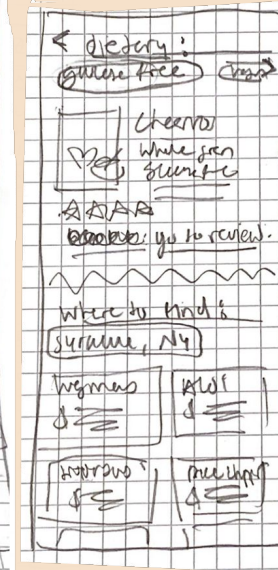 < dietary:
gluten free vegan
Cheerios
whole grain
go to review.
where to find:
Syracuse, NY
Wegmans ALDI
$ $
price chopper
$ $